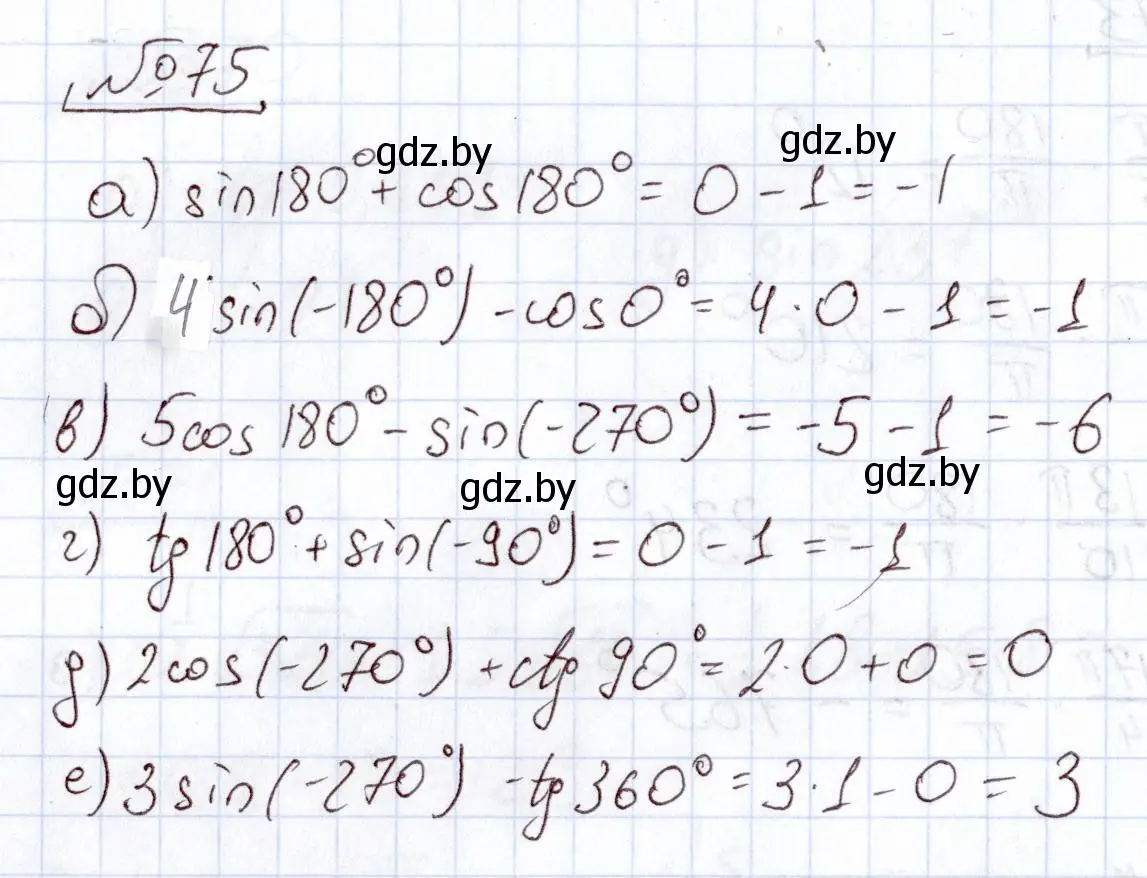 №75
gdz.by gdz.by
а) sin180° + cos180° = 0 - 1 = -1
б) 4 sin(-180°) - cos0° = 4·0 - 1 = -1
в) 5cos180° - sin(-270°) = -5 - 1 = -6
gdz.by gdz.by gdz.by
г) tg180° + sin(-90°) = 0 - 1 = -1
д) 2cos(-270°) + ctg90° = 2·0 + 0 = 0
е) 3sin(-270°) - tg360° = 3·1 - 0 = 3